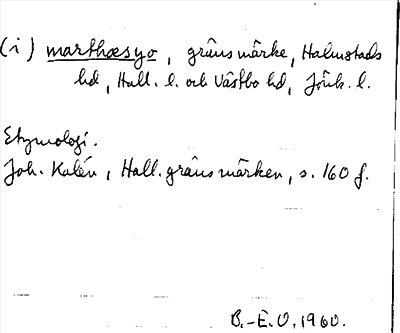 (i) marthæsyo, gränsmärke, Halmstads
hd, Hall. l. och Västbo hd, Jönk. l.
Etymologi.
Joh. Kalén, Hall. gränsmärken, s. 160 f.
B.-E.O. 1960.